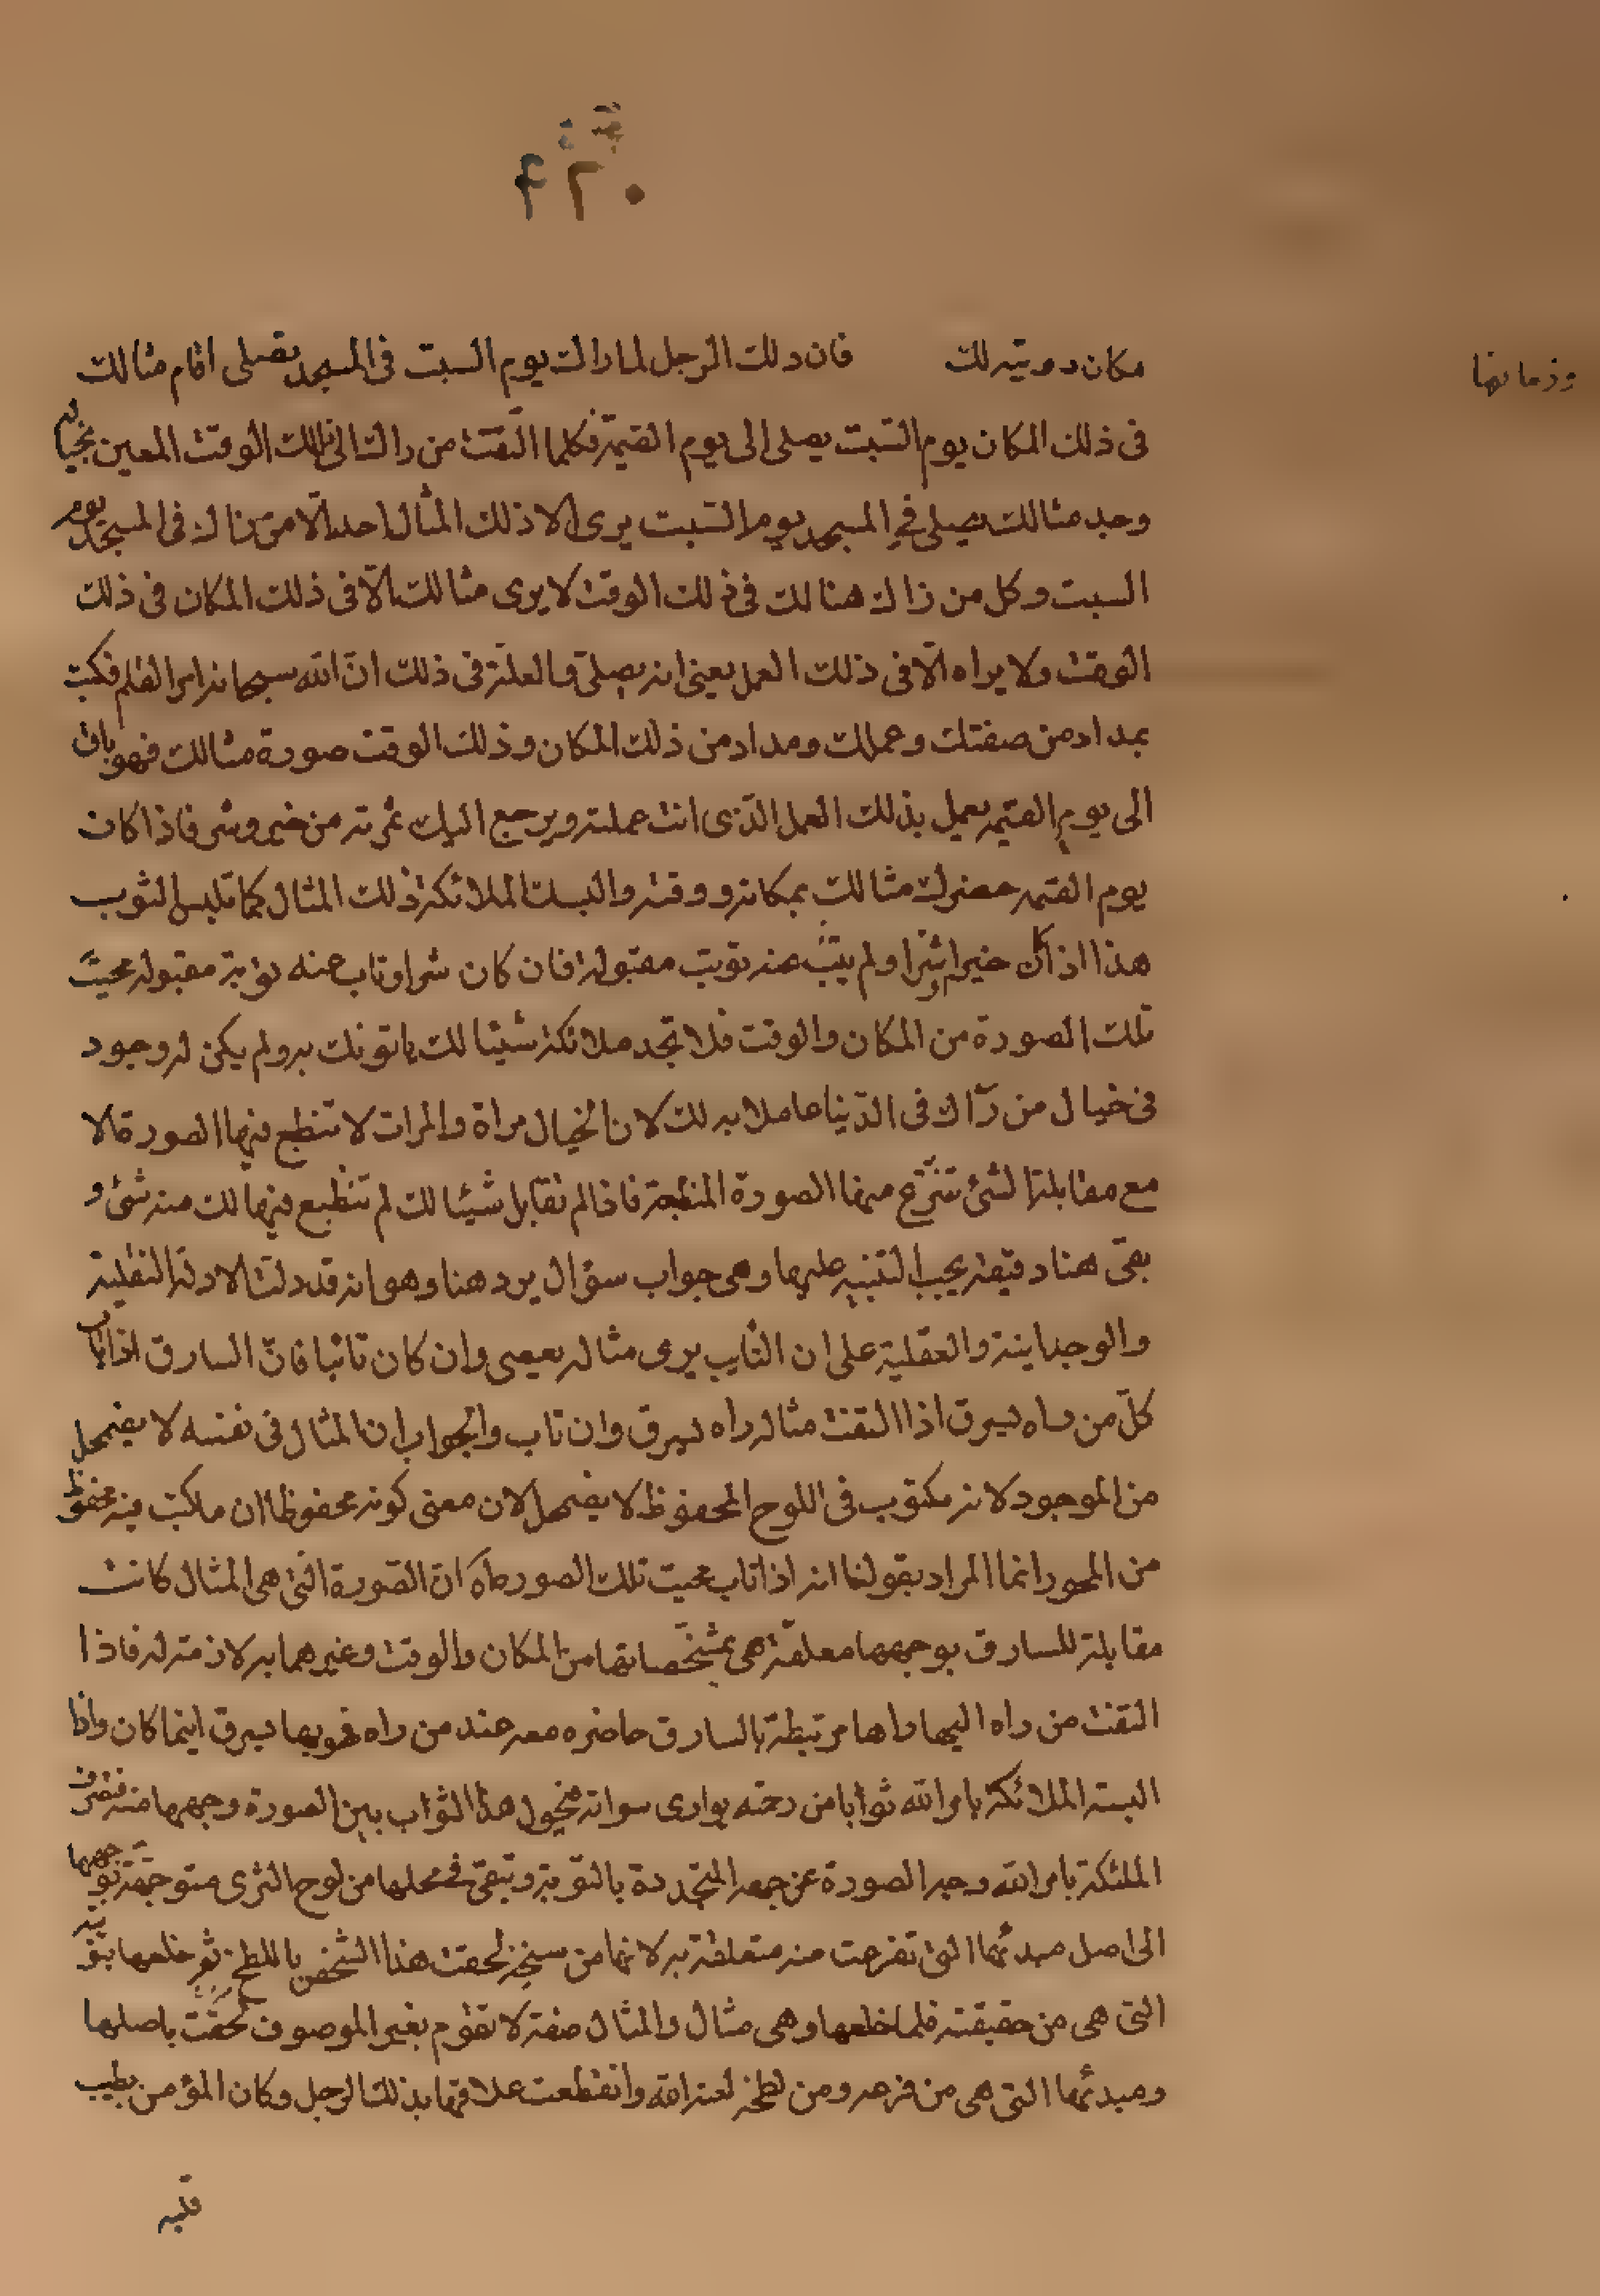 ٤٢٠
وزمانها
مكان رويته لك فان ذلك الرجل لما راك يوم السبت فى المسجد تصلى اقام مثالك
فى ذلك المكان يوم السبت يصلى الى يوم القيمة فكلما التفت من راك الى ذلك الوقت المعين بخياله
وجد مثالك يصلى فى المسجد يوم السبت يرى الا ذلك المثال احد الا من راك فى المسجد يوم
السبت وكل من راك هنالك فى ذلك الوقت لا يرى مثالك الا فى ذلك المكان فى ذلك
الوقت ولا يراه الّا فى ذلك العمل يعنى انه يصلى والعلة فى ذلك انّ الله سبحانه امر القلم فكتب
بمداد من صفتك وعملك ومداد من ذلك المكان وذلك الوقت صورة مثالك فهو باق
الى يوم القيمه يعمل بذلك العمل الّذى انت عملته ويرجع اليك ثمرته من خير وشر فاذا كان
يوم القيمه حضرك مثالك بمكانه ووقته والبستك الملائكة ذلك المثال كما تلبس الثوب
هذا اذا كان خيرا او شرا ولم يتب عنه توبة مقبولة فان كان شرا وتاب عنه توبة مقبولة محيت
تلك الصورة من المكان والوقت فلا تجد ملائكة شيئا لك ياتونك به ولم يكن له وجود
فى خيال من رآك فى الدّنيا عاملا به لك لان الخيال مراة والمرات لا تنطبع فيها الصورة الا
مع مقابلتها لشئ تنتزع منها الصورة المنطبعة فاذا لم تقابل شيئا لك لم تنطبع فيها لك منه شئ و
بقى هنا دقيقة يجب التنبيه عليها وهى جواب سؤال يرد هنا وهو انه قد دلت الادلة النقلية
والوجدانية والعقلية على ان التايب يرى مثاله يعصى وان كان تائبا فانّ السارق اذا تاب
كلّ من راه يسرق اذا التفت مثاله راه يسرق وان تاب والجواب ان المثال فى نفسه لا يضمحل
من الموجود لانه مكتوب فى اللوح المحفوظ لا يضمحل لان معنى كونه محفوظا ان ما كتب فيه محفوظ
من المحو وانما المراد بقولنا انه اذا تاب محيت تلك الصورة انّ الصّورة التى هى المثال كانت
مقابلة للسارق بوجهها معلقة هى بمشخّصاتها من المكان والوقت وغيرهما به لازمة له فاذا
التفت من راه اليها راها مرتبطة بالسارق حاضره معه عند من راه فهو بها يسرق اينما كان واذا
البسته الملائكة بامر الله ثوابا من رحمته يوارى سواته فيحول هذا الثواب بين الصورة وجهها منه فتصرف
الملئكة بامر الله وجه الصورة عن جهه المتجددة بالتوبة وتبقى فى محلها من لوح الثرى متوجهة بوجهها
الى اصل مبدئها التى تفرعت منه متعلقة به لانها من سنخه لحقت هذا الشخص باللطخ ثم خلعها بتوبته
التى هى من حقيقته فلما خلعها وهى مثال والمثال صفة لا تقوم بغير الموصوف لحقت باصلها
ومبدئها التى هى من فرعه ومن لطخه لعنه الله وانقطعت علاقتها بذلك الرجل وكان المؤمن بطيب
قلبه